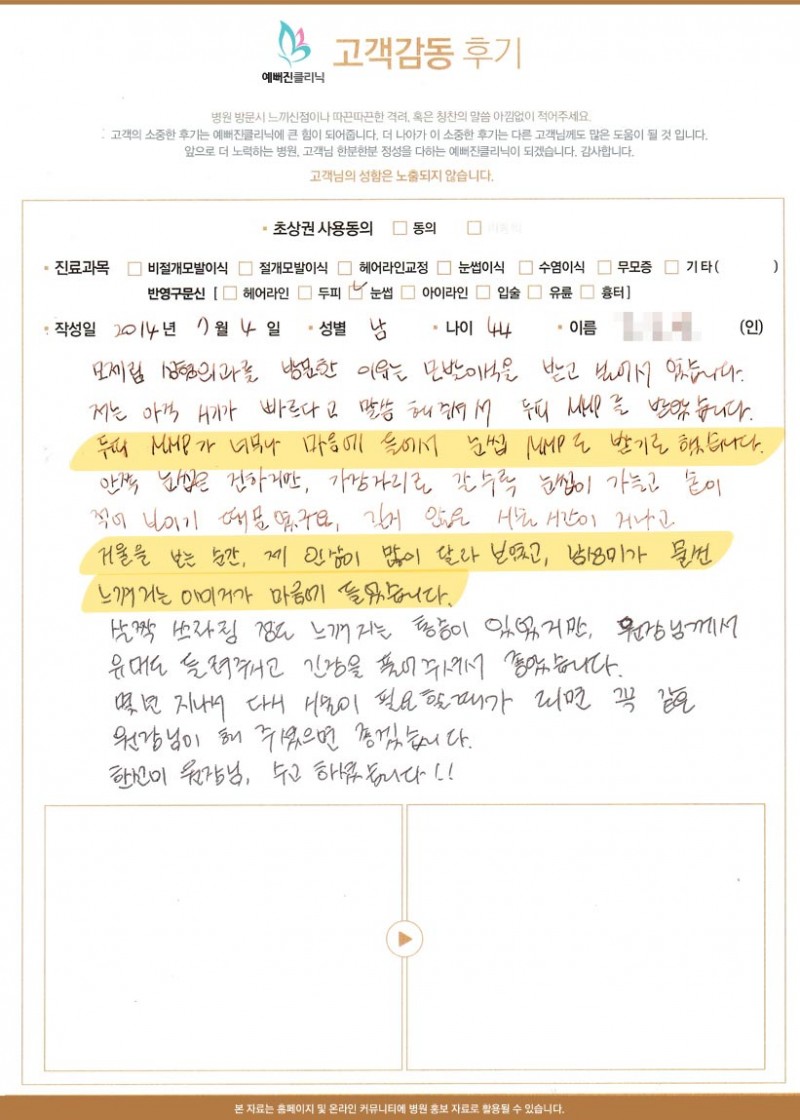 예뻐진클리닉
고객감동 후기
병원 방문시 느끼신점이나 따끈따끈한 격려, 혹은 칭찬의 말씀 아낌없이 적어주세요.
고객의 소중한 후기는 예뻐진클리닉에 큰 힘이 되어줍니다. 더 나아가 이 소중한 후기는 다른 고객님께도 많은 도움이 될 것 입니다.
앞으로 더 노력하는 병원, 고객님 한분한분 정성을 다하는 예뻐진클리닉이 되겠습니다. 감사합니다.
고객님의 성함은 노출되지 않습니다.
초상권 사용동의 동의
진료과목 비절개모발이식 절개모발이식 헤어라인교정 눈썹이식 수염이식 무모증 기타( )
반영구문신 [ 헤어라인 두피 눈썹 아이라인 입술 유륜 흉터 ]
작성일 2014년 7월 4일 성별 남 나이 44 이름 (인)
모제림 성형외과를 방문한 이유는 모발이식을 받고 싶어서 였습니다.
저는 아직 시기가 빠르다고 말씀 해주셔서 두피 MHP를 받았습니다.
두피 MHP가 너무나 마음에 들어서 눈썹 MHP도 받기로 했습니다.
안쪽 눈썹은 진하지만, 가장자리로 갈수록 눈썹이 가늘고 숱이
적어 보이기 때문였구요, 길지 않은 시술시간이 지나고
거울을 보는 순간, 제 인상이 많이 달라 보였고, 남성미가 물씬
느껴지는 이미지가 마음에 들었습니다.
살짝 쓰라림 정도 느껴지는 통증이 있었지만, 원장님께서
유머도 들려주시고 긴장을 풀어주셔서 좋았습니다.
몇년 지나서 다시 시술이 필요할때가 되면 꼭 같은
원장님이 해 주셨으면 좋겠습니다.
원장님, 수고 하셨습니다!!
본 자료는 홈페이지 및 온라인 커뮤니티에 병원 홍보 자료로 활용될 수 있습니다.